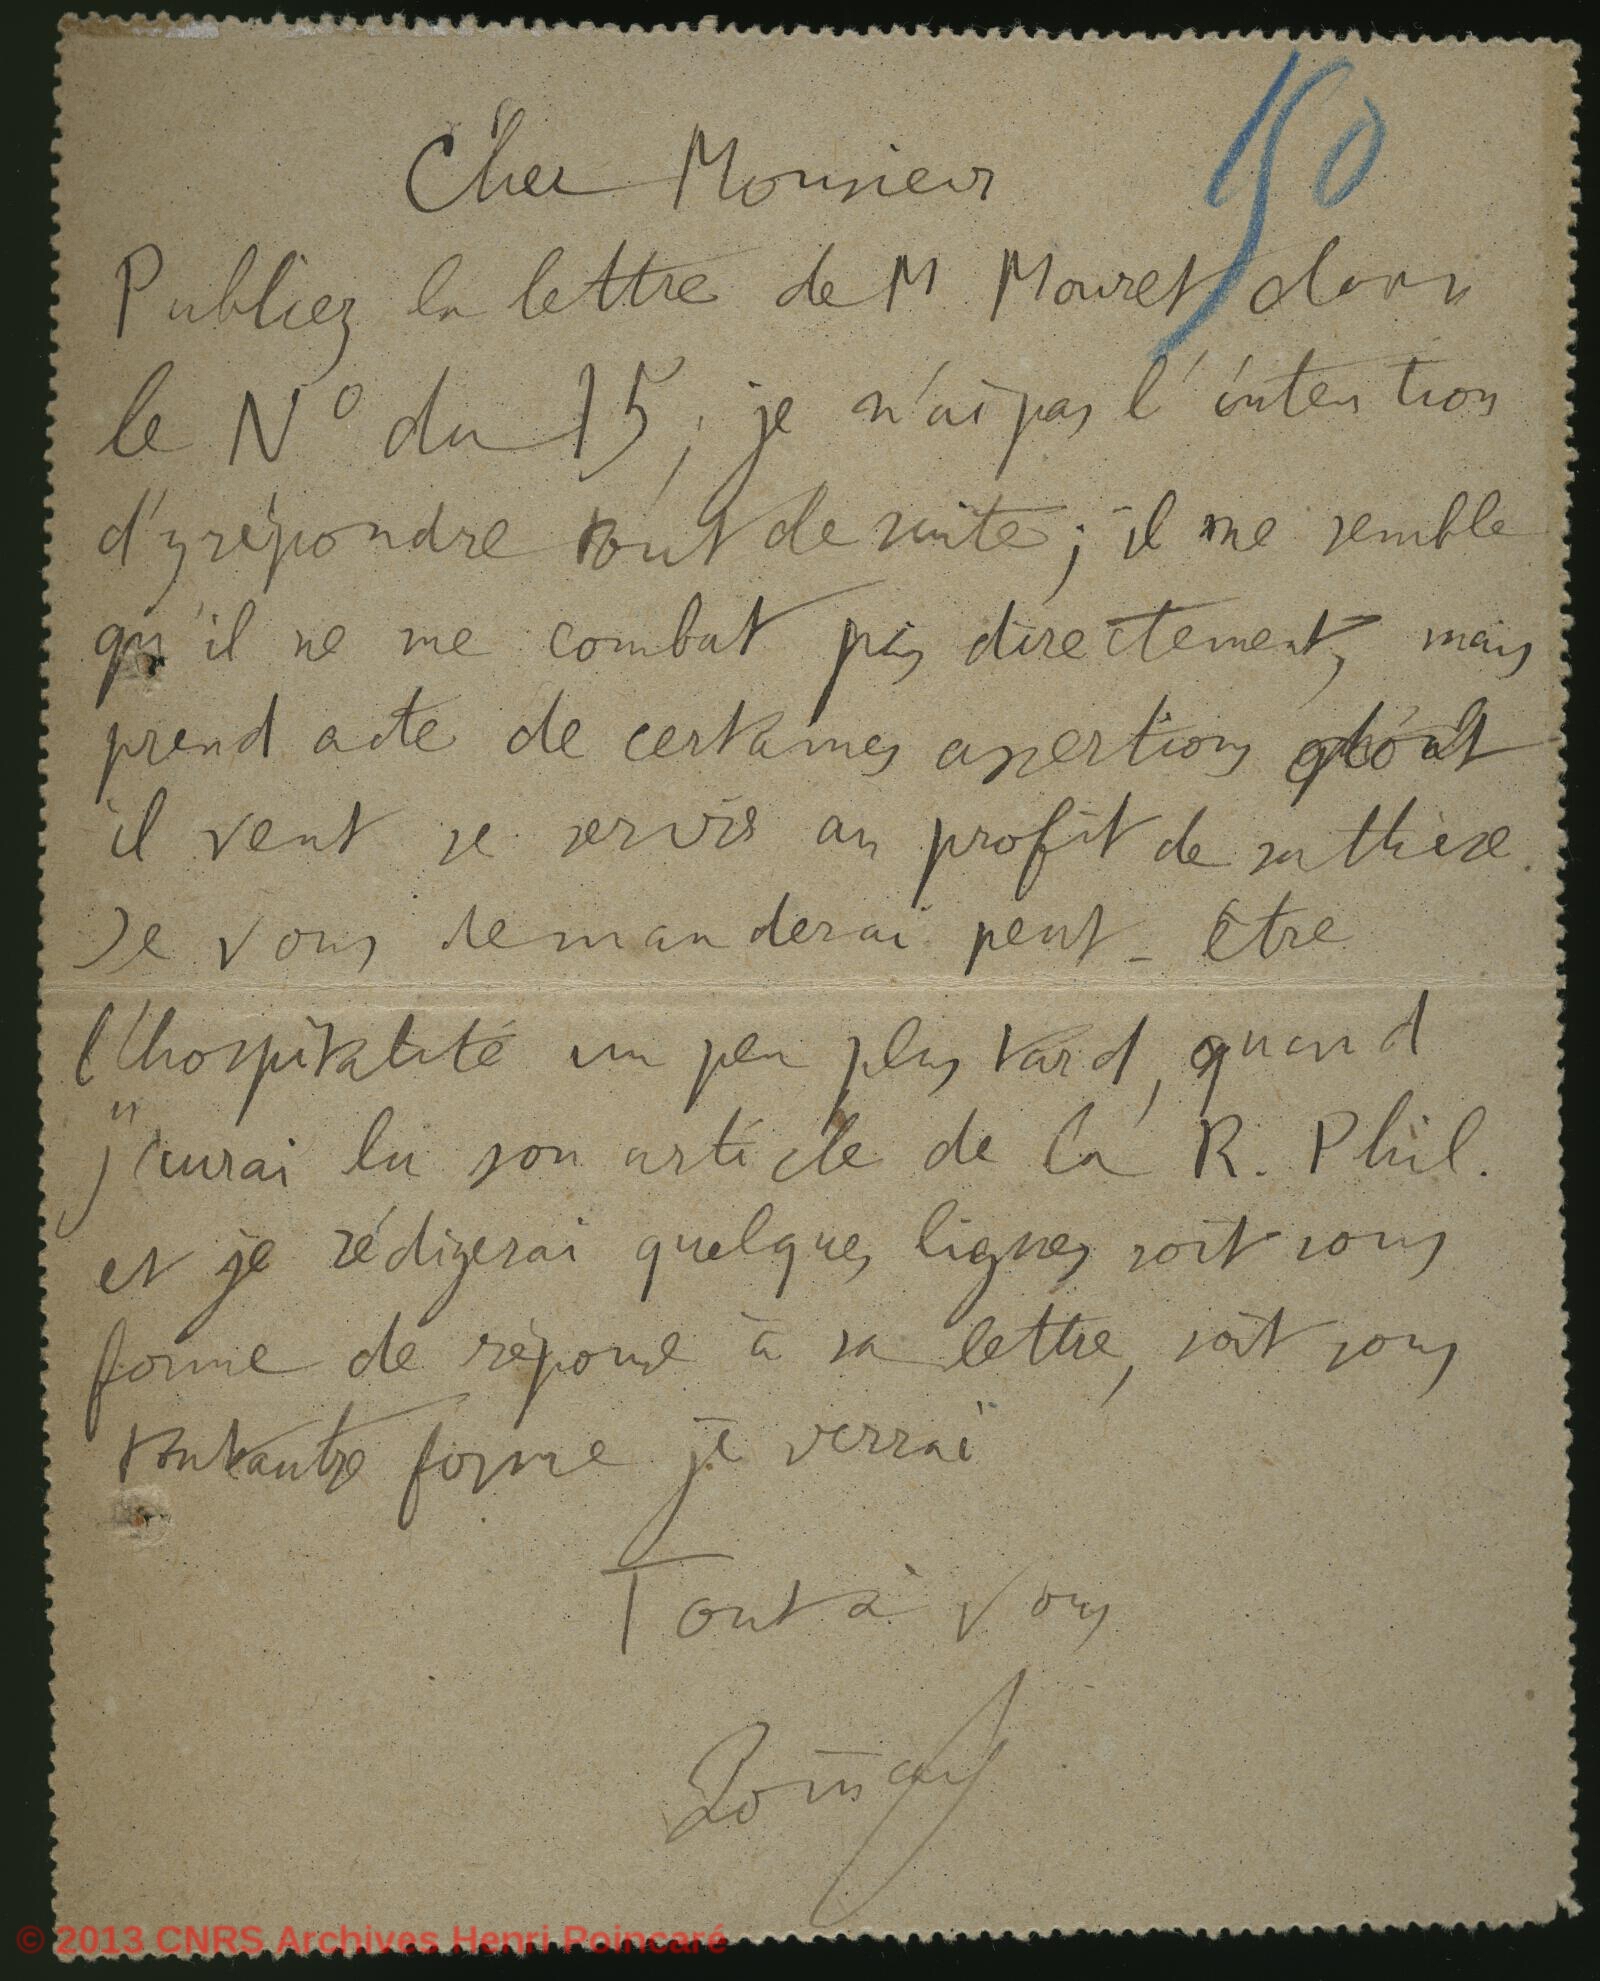 150
Cher Monsieur
Publiez la lettre de M Mouret dans
le N° du 15 ; je n'ai pas l'intention
d'y répondre tout de suite ; il me semble
qu'il ne me combat pas directement, mais
prend acte de certaines assertions dont
il veut se servir au profit de sa thèse.
Je vous demanderai peut-être
l'hospitalité un peu plus tard, quand
j'aurai lu son article de la R. Phil.
et je rédigerai quelques lignes soit sous
forme de réponse à sa lettre, soit sous
tout autre forme je verrai
Tout à vous
Poincaré
© 2013 CNRS Archives Henri Poincaré